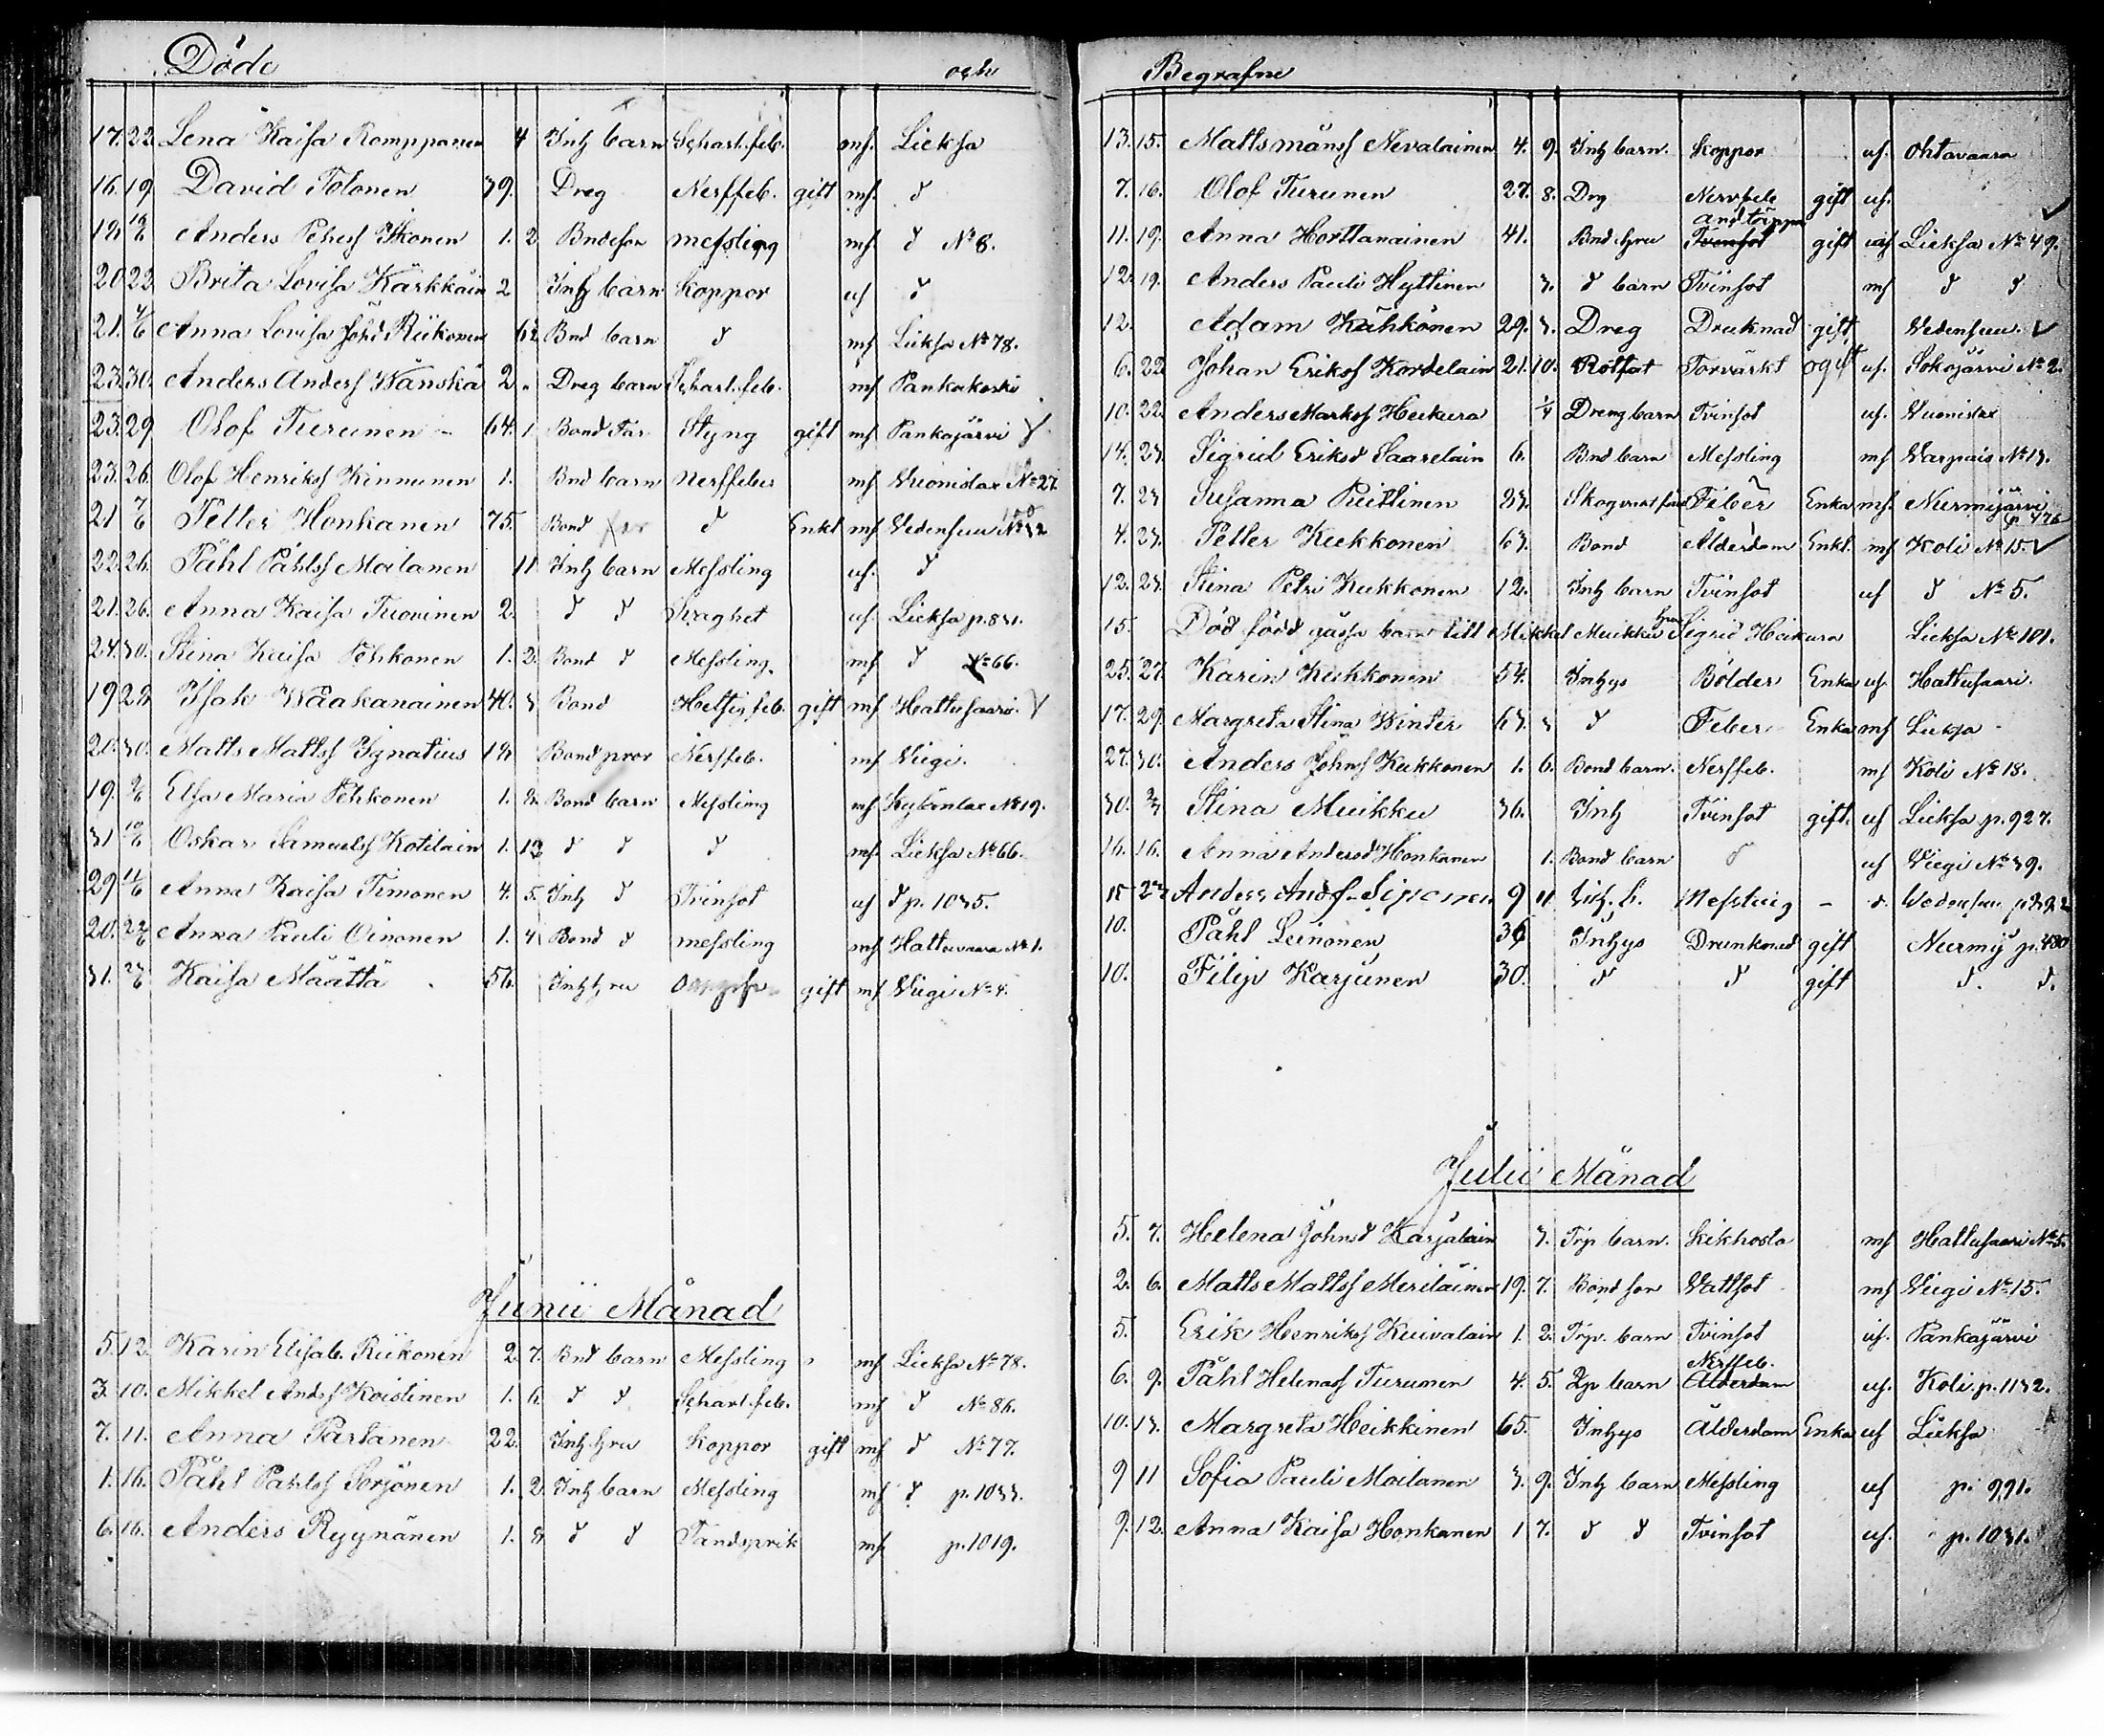 Döde och
17. 22. Lena Kaisa Romppanen 4 Inh barn Scharl. feb. mf. Lieksa
16. 19 David Tolonen 39. Dreg Nerffeb. gift mf. d
Anders Pehrs Ikonen 1. 2 Bndeson messling mf d No 8.
20 22 Brita Lovisa Kärkkäin 2 Inh barn Koppor uf d
21. Anna Lovisa Johsd Riikonen Bnd barn d mf Lieksa No 78.
23. 30. Anders Anders Wänskä 2 Dreg barn Scharl. feb. mf Pankakoski
23. 29 Olof Turunen 64. 1. Bond Far Styng gift mf Pankajärvi
23. 26. Olof Henriks Kinnunen 1. Bnd barn nerffeber mf Vuonislax No 27.
21 Petter Honkanen 75. Bond far d Enkl mf Vedensuu
22. 26. Påhl Påhls Moilanen 11. Inh barn Messling uf. d
21. 26. Anna Kaisa Tuovinen 2. d d Svaghet uf. Lieksa p. 831.
24. 30. Stina Kaisa Pehkonen 1. 2. Bond d Messling mf d No 66.
19 22 Isak Wäakanainen 40. 3 Bond Hetsig feb. gift mf Hattusaari.
20. 30. Matts Matts Ignatius 18 Bond pror Nerffeb. mf Viegi.
19. Elsa Maria Pehkonen 1. 8. Bond barn Messling mf Kylänlax No 19.
31 Oskar Samuels Kotilain 1. d d d mf. Lieksa No 66.
29 Anna Kaisa Timonen 4. 5. Inh d Tvinsot uf d p. 1035.
20. Anna Pauli Oinonen 1. 4 Bond d messling mf Hattuvaara No 1.
31. Kaisa Määttä 56. Inh hru gift mf Viegi No 4.
Junii Månad
5. 12. Karin Elisab. Riikonen 2. 7. Bnd barn Messling mf Lieksa No 78.
3. 10. Mikkel Ands Koistinen 1. 6. d d Scharl. feb. mf d No 86.
7. 11. Anna Partanen 22. Inh hru Koppor gift mf d No 77.
1. 16. Påhl Påhls Sorjonen 1. 2 Inh barn Messling mf d p. 1033.
6. 16. Anders Ryynänen 1. 8 d d Tandsprik mf p. 1019.
Begrafne
13. 15. Matts månss Nevalainen 4. 9. Inh barn. Koppor uf. Ohtavaara
7. 16. Olof Turunen 27. 8. Drg Nervfebe gift uf.
andtäppa
11. 19. Anna Horttanainen 41. Bnd hru Tvinsot gift uf Lieksa No 49.
12. 19. Anders Pauli Hyttinen 3. d barn Tvinsot mf d d
12. Adam Kähkönen 29. 3. Dreg Druknad gift Vedensuu.
6. 22 Johan Eriks Kordelain 21. 10. Rotfat Torvärkt ogift uf. Sokojärvi No 2.
10. 22. Anders Marks Heikura 1/4 Dreng barn Tvinsot uf. Vuonislax
14. 23. Sigrid Eriksd Saarelain 6. Bnd barn Messling mf Varpais No 13.
7. 23 Susanna Piittinen 83. Feber Enka mf. Nurmijärvi p 476
4. 23. Petter Kukkonen 63. Bond Ålderdom Enkl. mf Koli No 15.
12. 23. Stina Petri Kukkonen 12. Inh barn Tvinsot uf d No 5.
15. Död född gåsse barn till Mikkel Muikku hru Sigrid Heikura Lieksa No 101.
25. 27 Karin Kukkonen 54. Inhys Bölder Enka uf Hattusaari.
17. 29. Margreta Stina Winter 63. 3 d Feber Enka mf Lieksa
27. 30. Anders Johns Kukkonen 1. 6. Bond barn. Nerffeb. mf Koli No 18.
30. Stina Muikku 36. Inh Tvinsot gift. uf Lieksa p. 927.
16. 16. Anna Andersd Honkanen 1. Bond barn d uf Viegi No 39.
15 23 Anders Ands Siponen 9 11 Inh. b. Messling d. Vedensuu
10. Påhl Leinonen 36 Inhys Drunknad gift Nurmij p. 480
10. Filip Karjunen 30. d d gift d. d.
Julii Månad
5. 7. Helena Johnsd Karjalain 3. Trp barn. Kikhosta mf Hattusaari No 5.
2. 6. Matts Matts Meriläinen 19. 7. Bond son Vattsot mf Viegi No 15.
5. Erik Henriks Kuivalain 1. 2. Trp. barn Tvinsot uf. Pankajärvi
Nerffeb.
6. 9. Påhl Helenas Turunen 4. 5. Lp barn Ålderdom uf. Koli p. 1132.
10. 13. Margreta Heikkinen 65. Inhys Ålderdom Enka uf Lieksa
9 11 Sofia Pauli Moilanen 3. 9. Inh barn Messling uf p. 991.
9. 12. Anna Kaisa Honkanen 1 7. d d Tvinsot uf. p. 1031.